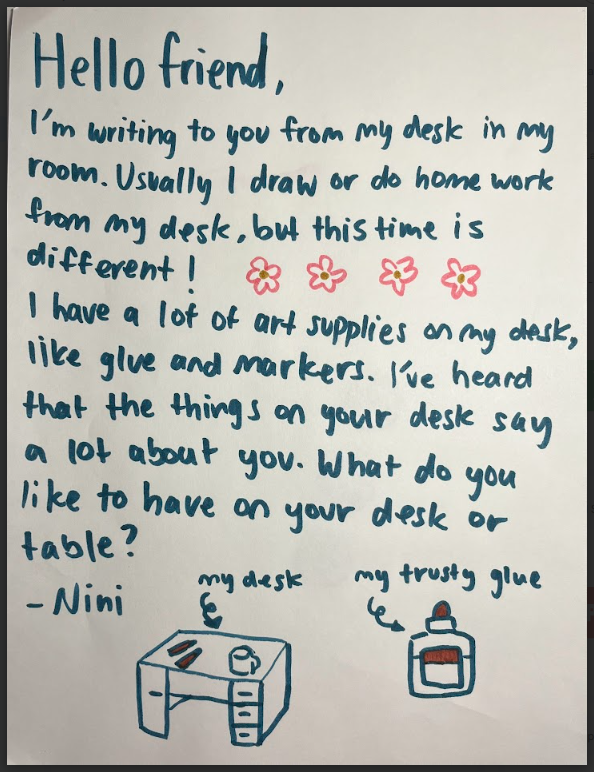 Hello friend,
I'm writing to you from my desk in my
room. Usually I draw or do home work
from my desk, but this time is
different!
I have a lot of art supplies on my desk,
like glue and markers. I've heard
that the things on your desk say
a lot about you. What do you
like to have on your desk or
table?
- Nini
my desk
my trusty glue